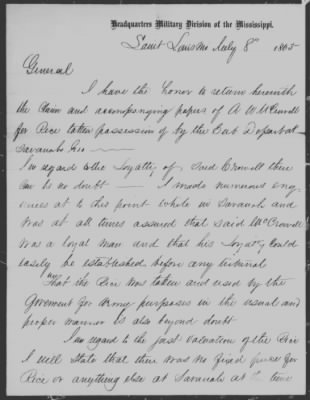 Headquarters Military Division of the Mississippi,
Saint Louis Mo July 8th 1865
General
I have the honor to return herewith
the Claim and accompanying papers of A. W. McCrowell
for Rice taken possession of by the Sub Depart at
Savanah Geo
In regard to the Loyalty of Said Crowell there
can be no doubt — I made numerous enq
uiries as to this point while in Savanah and
was at all times assured that said McCrowell
was a loyal man and that his Loyalty could
easily be established before any tribunal
That the Rice was taken and used by the
Goverment for Army purposes in the usual and
proper manner is also beyond doubt
In regard to the just valuation of the Rice
I will State that there was no fixed price for
Rice or anything else at Savanah at the time